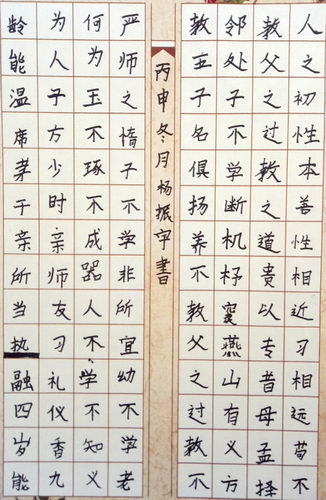 人之初性本善性相近习相远苟不
教父之过教之道贵以专昔母孟择
邻处子子不学断机杼窦燕山有义方
教五子名俱扬养不教父之过教不
丙申冬月杨振宇書
严师之惰子不学非所宜幼不学老
何为玉不琢不成器人不学不知义
为人子方少时亲师友习礼仪香九
龄能温席孝于亲所当执融四岁能